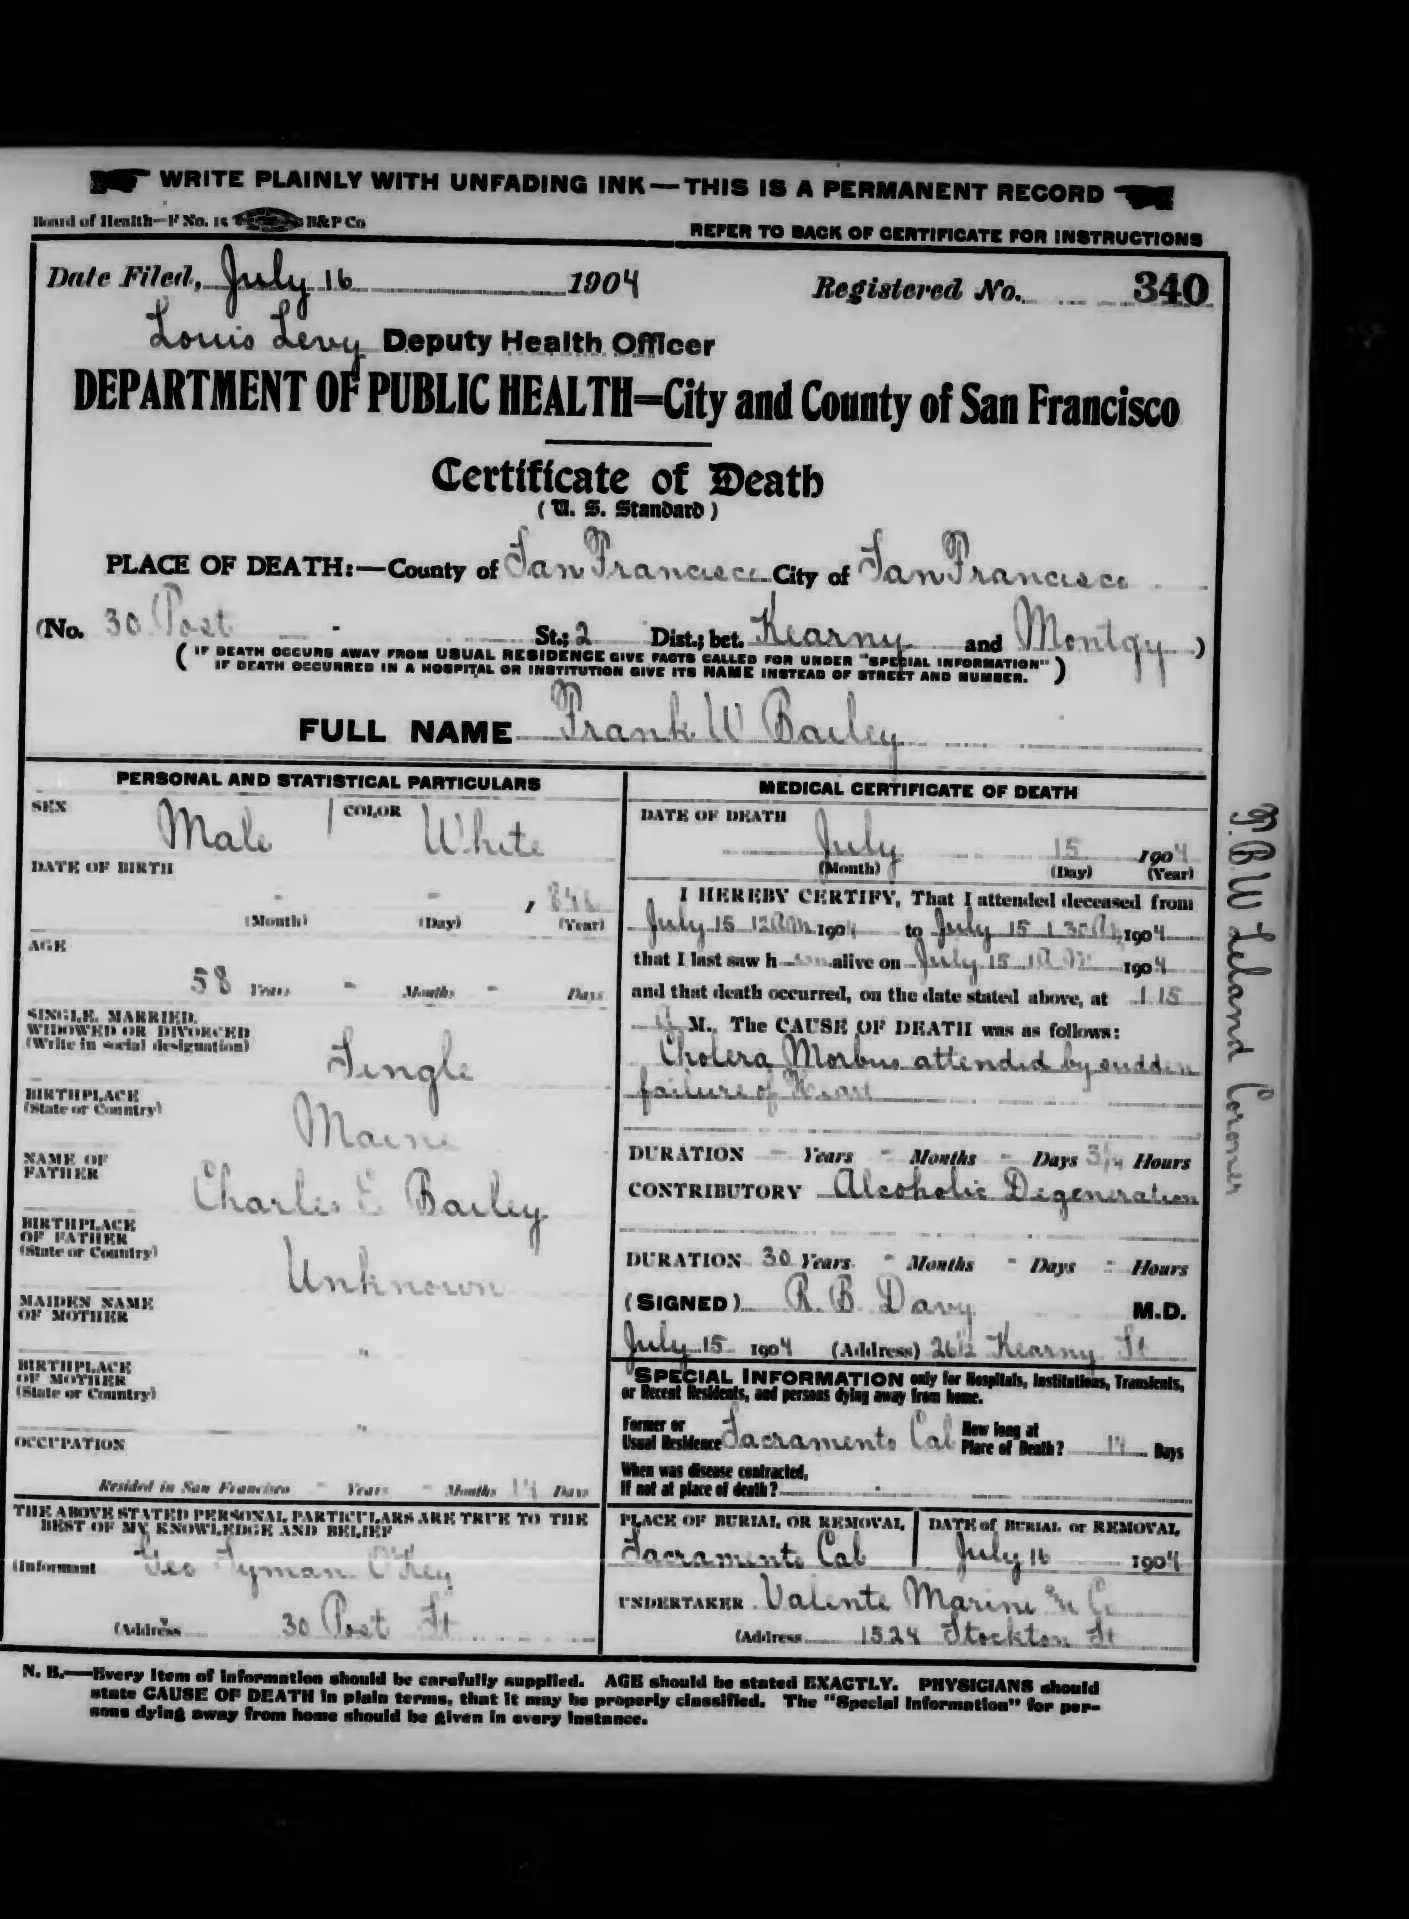 WRITE PLAINLY WITH UNFADING INK—THIS IS A PERMANENT RECORD
Board of Health—F No. 15 B&P Co
REFER TO BACK OF CERTIFICATE FOR INSTRUCTIONS
Date Filed, July 16 1904 Registered No. 340
Louis Levy Deputy Health Officer
DEPARTMENT OF PUBLIC HEALTH=City and County of San Francisco
Certificate of Death
(U. S. Standard)
PLACE OF DEATH:—County of San Francisco City of San Francisco
(No. 30 Post - St.; 2 Dist.; bet. Kearny and Montgy )
( IF DEATH OCCURS AWAY FROM USUAL RESIDENCE GIVE FACTS CALLED FOR UNDER "SPECIAL INFORMATION" )
IF DEATH OCCURRED IN A HOSPITAL OR INSTITUTION GIVE ITS NAME INSTEAD OF STREET AND NUMBER.
FULL NAME Frank W Bailey
PERSONAL AND STATISTICAL PARTICULARS
SEX Male COLOR White
DATE OF BIRTH
- - , 846
(Month) (Day) (Year)
AGE
58 Years - Months - Days
SINGLE, MARRIED,
WIDOWED OR DIVORCED
(Write in social designation)
Single
BIRTHPLACE
(State or Country)
Maine
NAME OF
FATHER
Charles E Bailey
BIRTHPLACE
OF FATHER
(State or Country)
Unknown
MAIDEN NAME
OF MOTHER
"
BIRTHPLACE
OF MOTHER
(State or Country)
"
OCCUPATION
Resided in San Francisco - Years - Months 14 Days
THE ABOVE STATED PERSONAL PARTICULARS ARE TRUE TO THE
BEST OF MY KNOWLEDGE AND BELIEF
(Informant Geo Lyman
(Address 30 Post St
MEDICAL CERTIFICATE OF DEATH
DATE OF DEATH
July 15 1904
(Month) (Day) (Year)
I HEREBY CERTIFY, That I attended deceased from
July 15 12 AM 1904 to July 15 1 30 A 1904
that I last saw h alive on July 15 1 A M 1904
and that death occurred, on the date stated above, at 1 15
A M. The CAUSE OF DEATH was as follows:
Cholera Morbus attended by sudden
failure of Heart
DURATION - Years - Months - Days 3/4 Hours
CONTRIBUTORY Alcoholic Degeneration
DURATION 30 Years - Months - Days - Hours
(SIGNED) R. B. Davy M.D.
July 15 1904 (Address) 26½ Kearny St
SPECIAL INFORMATION only for Hospitals, Institutions, Transients,
or Recent Residents, and persons dying away from home.
Former or
Usual Residence Sacramento Cal How long at
Place of Death? 14 Days
When was disease contracted,
If not at place of death?
PLACE OF BURIAL OR REMOVAL DATE of BURIAL or REMOVAL
Sacramento Cal July 16 1904
UNDERTAKER Valente Marini & Co
(Address 1524 Stockton St
N. B.—Every item of information should be carefully supplied. AGE should be stated EXACTLY. PHYSICIANS should
state CAUSE OF DEATH in plain terms, that it may be properly classified. The "Special Information" for per-
sons dying away from home should be given in every instance.
T. B. W Leland Coroner